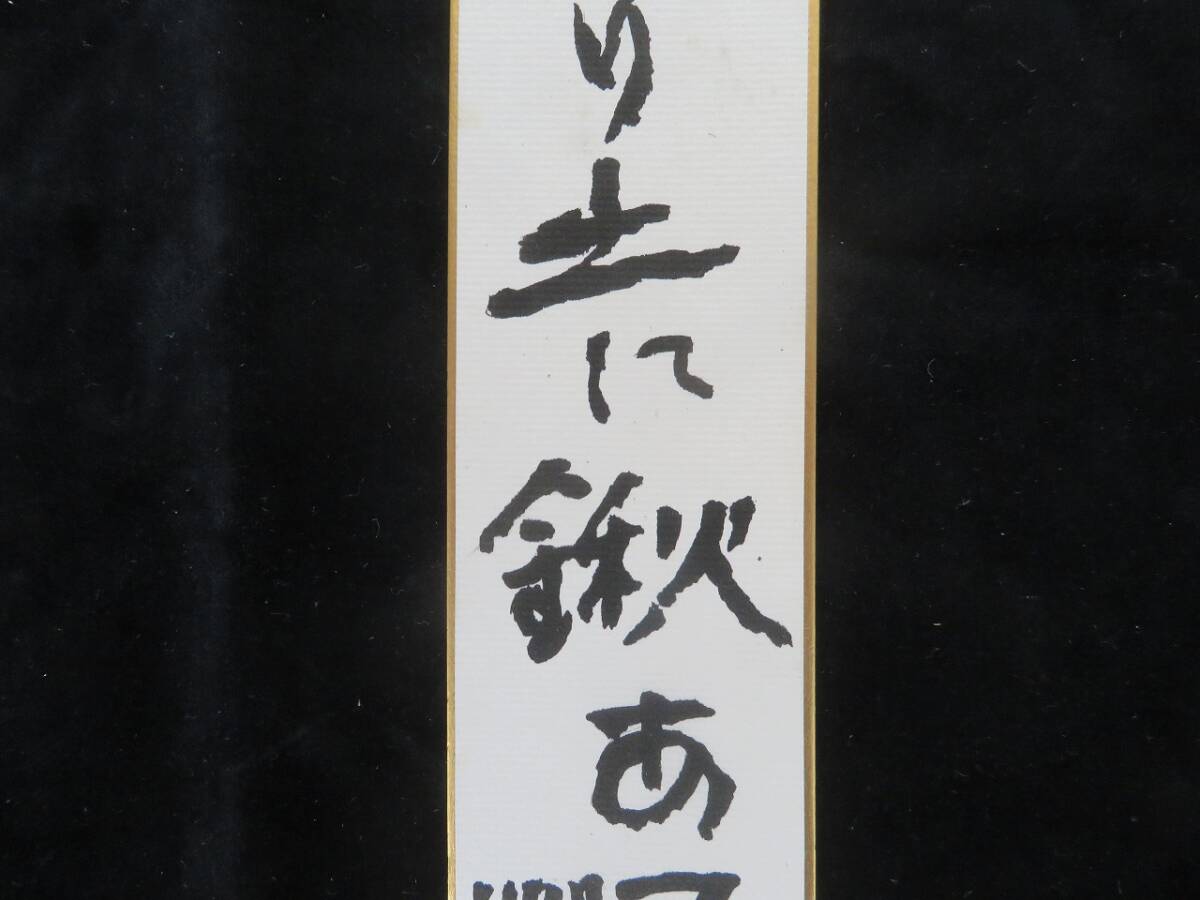 り土に鍬あ